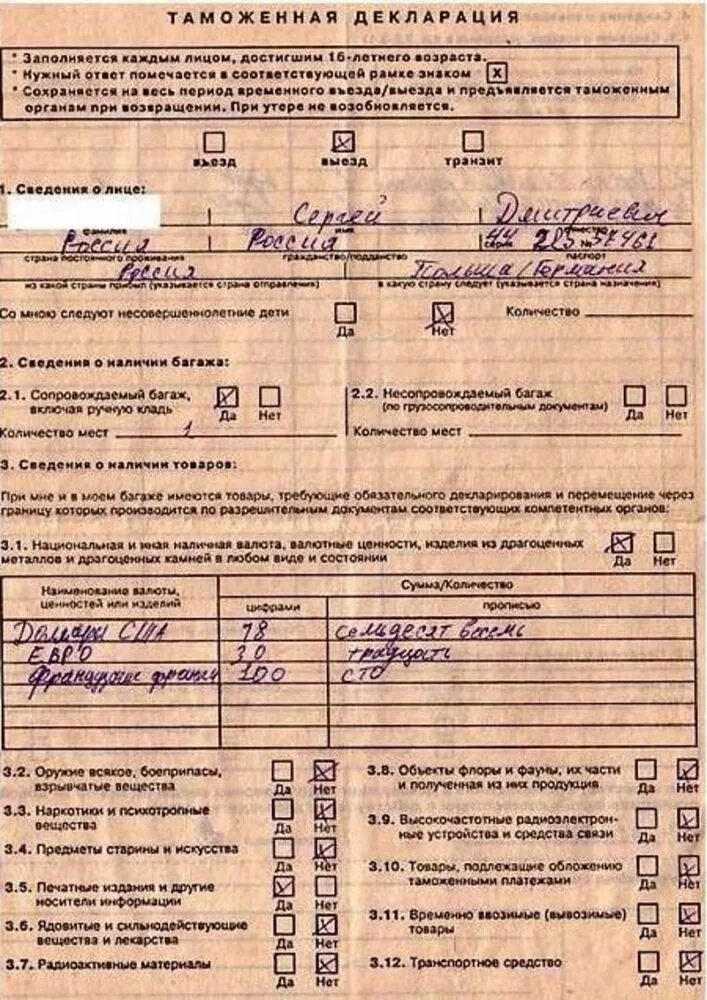 ТАМОЖЕННАЯ ДЕКЛАРАЦИЯ
* Заполняется каждым лицом, достигшим 16-летнего возраста.
* Нужный ответ помечается в соответствующей рамке знаком X
* Сохраняется на весь период временного въезда/выезда и предъявляется таможенным
органам при возвращении. При утере не возобновляется.
въезд выезд транзит
1. Сведения о лице:
Сергей Дмитриевич
фамилия имя отчество
Россия Россия 44 № 461
страна постоянного проживания гражданство/подданство серия паспорт
Россия Польша/Германия
из какой страны прибыл (указывается страна отправления) в какую страну следует (указывается страна назначения)
Со мною следуют несовершеннолетние дети Да Нет Количество
2. Сведения о наличии багажа:
2.1. Сопровождаемый багаж,
включая ручную кладь Да Нет
2.2. Несопровождаемый багаж
(по грузосопроводительным документам) Да Нет
Количество мест 1 Количество мест
3. Сведения о наличии товаров:
При мне и в моем багаже имеются товары, требующие обязательного декларирования и перемещение через
границу которых производится по разрешительным документам соответствующих компетентных органов:
3.1. Национальная и иная наличная валюта, валютные ценности, изделия из драгоценных
металлов и драгоценных камней в любом виде и состоянии Да Нет
Наименование валюты,
ценностей или изделий
Сумма/Количество
цифрами прописью
Доллары США 78 семьдесят восемь
ЕВРО 30 тридцать
Французские франки 100 сто
3.2. Оружие всякое, боеприпасы,
взрывчатые вещества Да Нет
3.3. Наркотики и психотропные
вещества Да Нет
3.4. Предметы старины и искусства Да Нет
3.5. Печатные издания и другие
носители информации Да Нет
3.6. Ядовитые и сильнодействующие
вещества и лекарства Да Нет
3.7. Радиоактивные материалы Да Нет
3.8. Объекты флоры и фауны, их части
и полученная из них продукция Да Нет
3.9. Высокочастотные радиоэлектрон-
ные устройства и средства связи Да Нет
3.10. Товары, подлежащие обложению
таможенными платежами Да Нет
3.11. Временно ввозимые (вывозимые)
товары Да Нет
3.12. Транспортное средство Да Нет